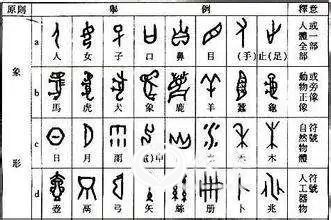 原則 舉例 釋意
象形
a 人 女 子 口 鼻 目 (手) 止(足) 人體全部或一部
b 馬 虎 犬 象 鹿 羊 蠶 龜 動物正像或旁像
c 日 月 雨 (申) 禾 木 自然物體符號
d 壺 鬲 弓 矢 絲 册 卜 兆 人工器物符號